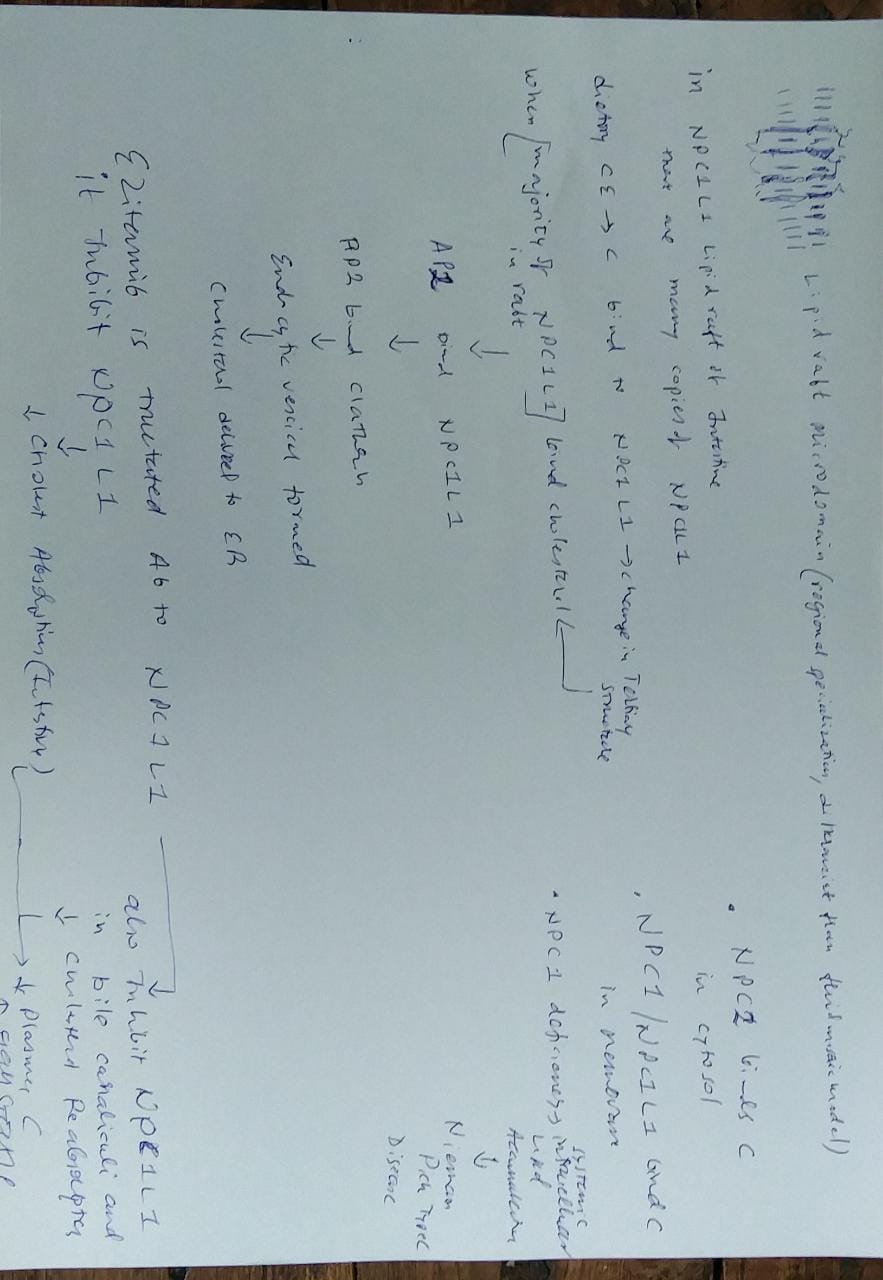 Lipid raft microdomain (regional specialization, different than fluid mosaic model)
in NPC1L1 Lipid raft of Intestine
there are many copies of NPC1L1
dietary CE → C bind to NPC1L1 → change in Tertiary
structure
when [majority of NPC1L1] bind cholesterol
in raft
↓
AP2 bind NPC1L1
↓
AP2 bind clathrin
↓
Endocytic vesicel formed
↓
Cholesterol delivered to ER
Ezitemib is trucated Ab to NPC1L1
it Inhibit NPC1L1
↓
↓ Cholest Absorption (Intestine)
• NPC2 binds C
in cytosol
• NPC1/NPC1L1 bind C
in membrane
• NPC1 deficiency → systemic
intracellular
Lipid
Accumulation
↓
Nieman
Pick Type C
Disease
also Inhibit NPC1L1
in bile canaliculi and
↓ Cholesterol Reabsorption
→ ↓ plasma C